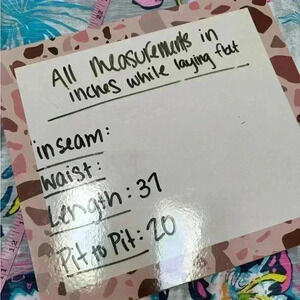 All measurements in
inches while laying flat
inseam:
Waist:
Length: 37
Pit to Pit: 20